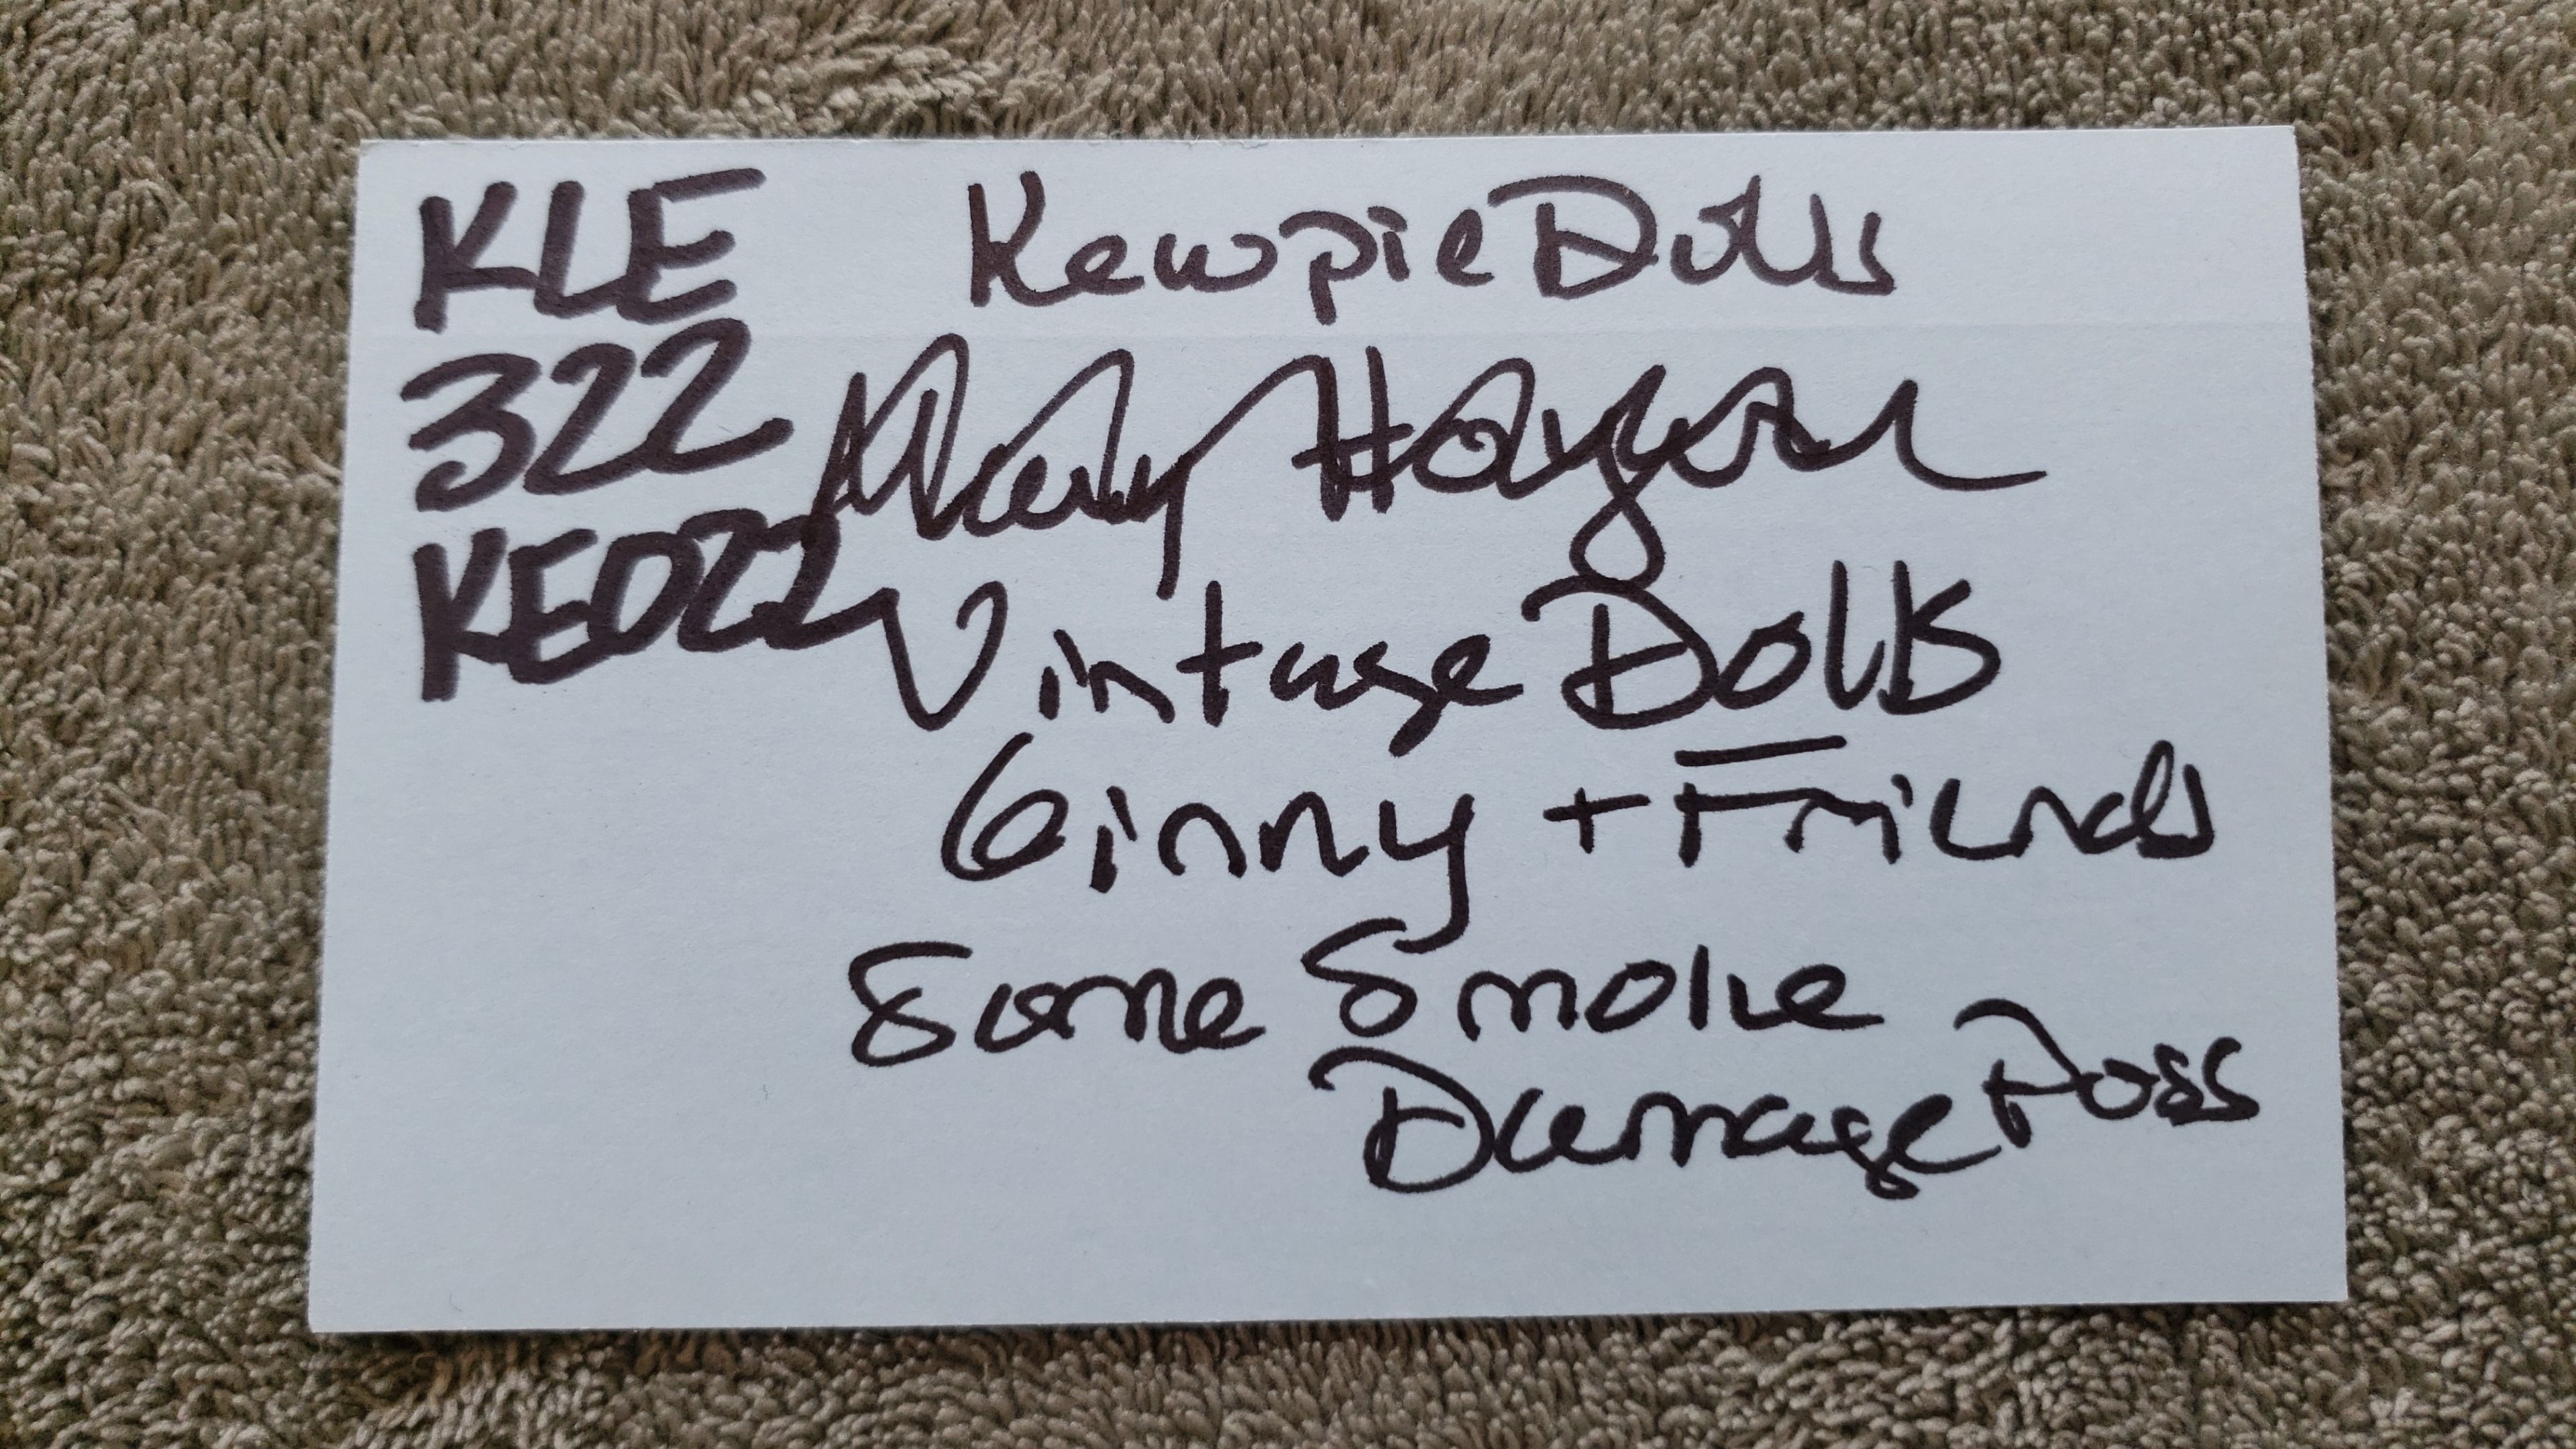 KLE Kewpie Dolls
322 Mary Hoyer
KE022 Vintage Dolls
Ginny + Friends
Some Smoke
Damage Poss